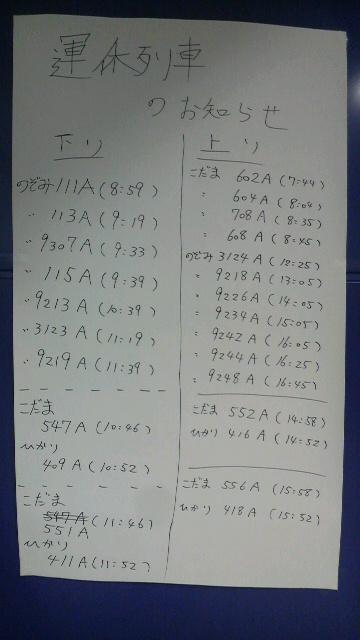 運休列車
のお知らせ
下り
のぞみ 111A (8:59)
〃 113A (9:19)
〃 9307A (9:33)
〃 115A (9:39)
〃 9213A (10:39)
〃 3123A (11:19)
〃 9219A (11:39)
こだま
547A (10:46)
ひかり
409A (10:52)
こだま
547A (11:46)
551A
ひかり
411A (11:52)
上り
こだま 602A (7:44)
〃 604A (8:04)
〃 708A (8:35)
〃 608A (8:45)
のぞみ 3124A (12:25)
〃 9218A (13:05)
〃 9226A (14:05)
〃 9234A (15:05)
〃 9242A (16:05)
〃 9244A (16:25)
〃 9248A (16:45)
こだま 552A (14:58)
ひかり 416A (14:52)
こだま 556A (15:58)
ひかり 418A (15:52)